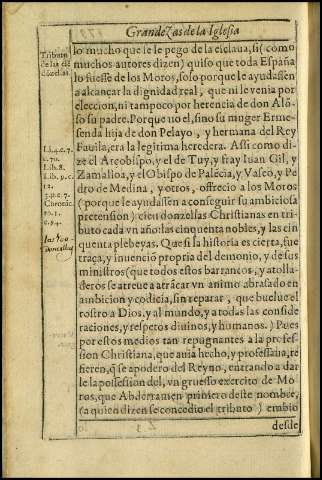 Grandezas de la Iglesia
lo mucho que se le pego de la esclaua, si (como
muchos autores dizen) quiso que toda España
lo fuesse de los Moros, solo porque le ayudassen
a alcançar la dignidad real, que ni le venia por
eleccion, ni tampoco por herencia de don Alõ-
so su padre. Porque no el, sino su muger Erme-
senda hija de don Pelayo, y hermana del Rey
Fauila, era la legitima heredera. Assi como di-
ze el Arçobispo, y el de Tuy, y fray Iuan Gil, y
Zamalloa, y el Obispo de Palẽcia, y Vaseo, y Pe
dro de Medina, y otros, offrecio a los Moros
(porque le ayudassen a conseguir su ambiciosa
pretension) cien donzellas Christianas en tri-
buto cada vn año: las cinquenta nobles, y las cin
quenta plebeyas. Que si la historia es cierta, fue
traça, y inuenciõ propria del demonio, y de sus
ministros (que todos estos barrancos, y atolla-
deros se atreue a atrãcar vn animo abrasado en
ambicion y codicia, sin reparar, que buelue el
rostro a Dios, y al mundo, y a todas las conside
raciones, y respetos diuinos, y humanos.) Pues
por estos medios tan repugnantes a la profes-
sion Christiana, que auia hecho, y professaua, re
fieren, q̃ se apodero del Reyno, entrando a dar
le la possession del, vn gruesso exercito de Mo
ros, que Abderramen primero deste nombre,
(a quien dizen se concedio el tributo) embio
desde
Tributo
de las ciẽ
dõzellas.
Lib. 4. c. 7.
Lib. 8.
Lib. 9. c.
12.
3. p. c. 7.
Chronic.
10. 1.
c. 94.
las 100
donzellas